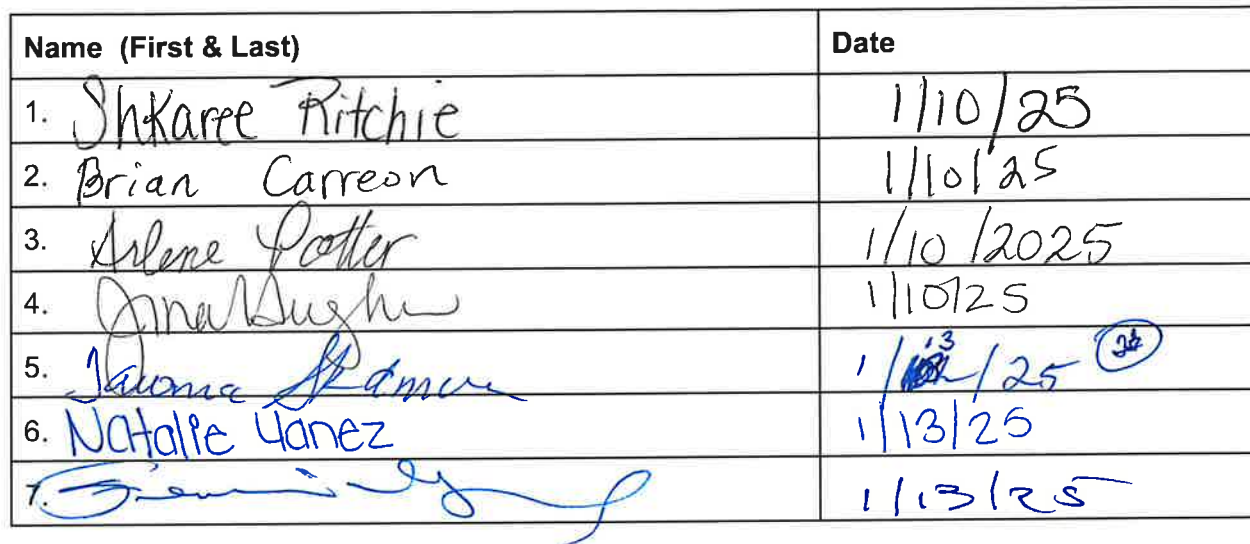 Name (First & Last) Date
1. Shkaree Ritchie 1/10/25
2. Brian Carreon 1/10/25
3. Arlene Potter 1/10/2025
4. 1/10/25
5. 1/13/25
6. Natalie Yanez 1/13/25
7. 1/13/25